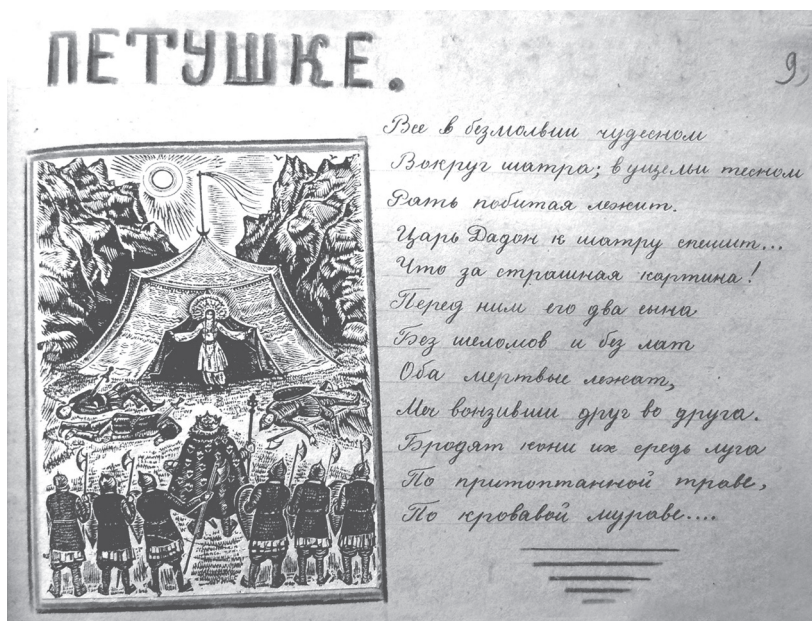 ПЕТУШКЕ.
9,
Все в безмолвии чудесном
Вокруг шатра; в ущельи тесном
Рать побитая лежит.
Царь Дадон к шатру спешит...
Что за страшная картина!
Перед ним его два сына
Без шеломов и без лат
Оба мертвые лежат,
Меч вонзивши друг во друга.
Бродят кони их средь луга
По притоптанной траве,
По кровавой мураве....